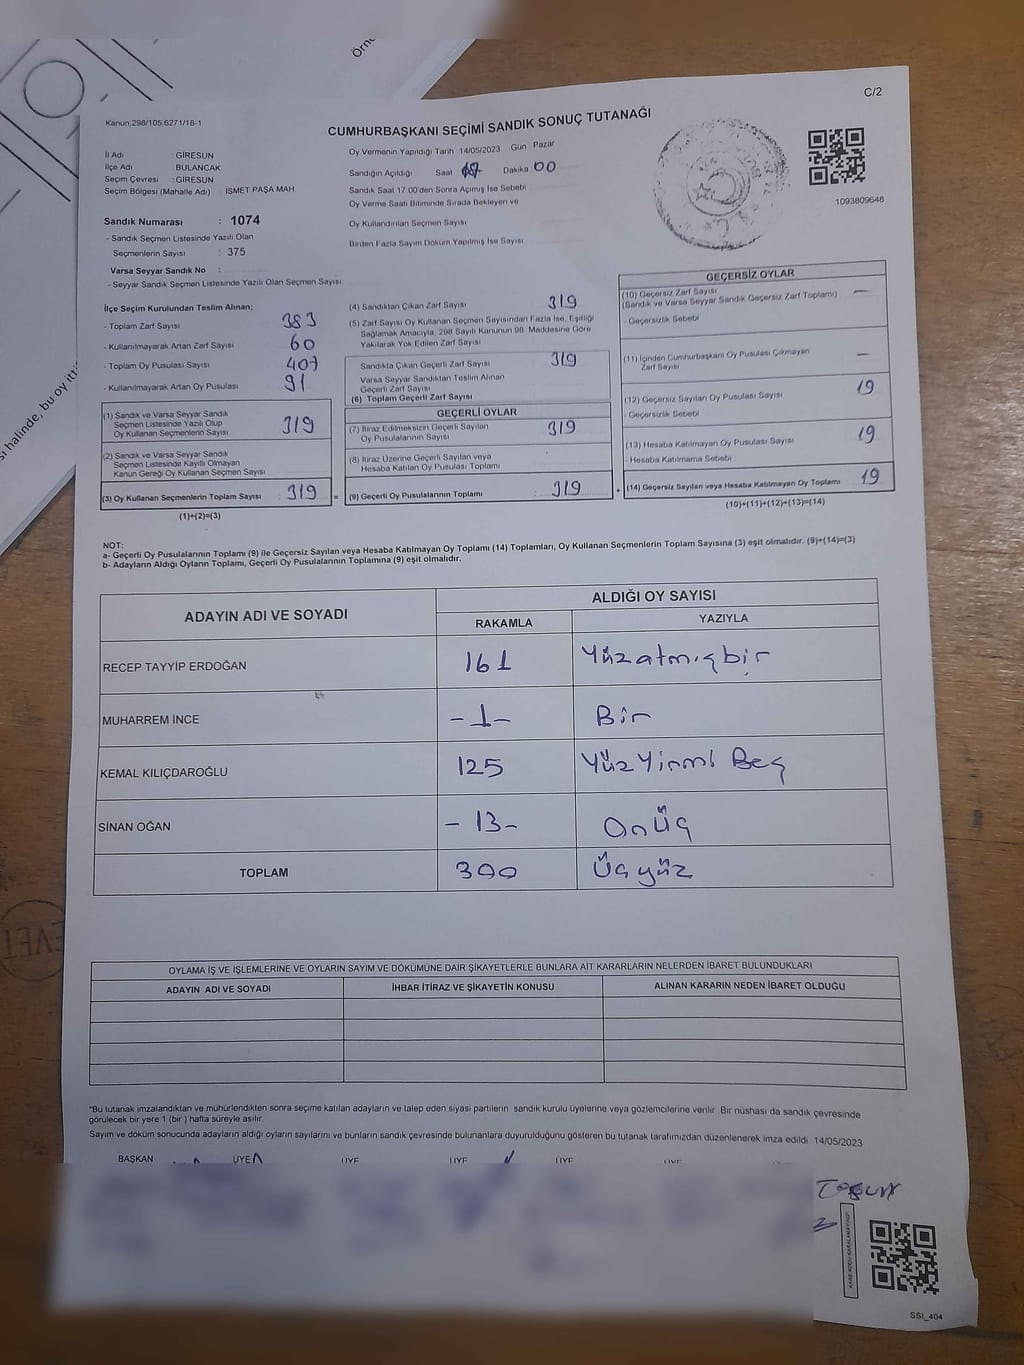 Örne
C/2
Kanun.298/105;6271/18-1
CUMHURBAŞKANI SEÇİMİ SANDIK SONUÇ TUTANAĞI
İl Adı : GİRESUN
İlçe Adı : BULANCAK
Seçim Çevresi : GİRESUN
Seçim Bölgesi (Mahalle Adı) : İSMET PAŞA MAH
Sandık Numarası : 1074
- Sandık Seçmen Listesinde Yazılı Olan
Seçmenlerin Sayısı : 375
Varsa Seyyar Sandık No :
- Seyyar Sandık Seçmen Listesinde Yazılı Olan Seçmen Sayısı
Oy Vermenin Yapıldığı Tarih : 14/05/2023 Gün : Pazar
Sandığın Açıldığı Saat : 17 Dakika 00
Sandık Saat 17:00'den Sonra Açımış İse Sebebi
Oy Verme Saati Bitiminde Sırada Bekleyen ve
Oy Kullandırılan Seçmen Sayısı
Birden Fazla Sayım Döküm Yapılmış İse Sayısı
1093809648
İlçe Seçim Kurulundan Teslim Alınan;
- Toplam Zarf Sayısı 383
- Kullanılmayarak Artan Zarf Sayısı 60
- Toplam Oy Pusulası Sayısı 407
- Kullanılmayarak Artan Oy Pusulası 91
(1) Sandık ve Varsa Seyyar Sandık
Seçmen Listesinde Yazılı Olup
Oy Kullanan Seçmenlerin Sayısı 319
(2) Sandık ve Varsa Seyyar Sandık
Seçmen Listesinde Kayıtlı Olmayan
Kanun Gereği Oy Kullanan Seçmen Sayısı
(3) Oy Kullanan Seçmenlerin Toplam Sayısı 319 =
(1)+(2)=(3)
(4) Sandıktan Çıkan Zarf Sayısı 319
(5) Zarf Sayısı Oy Kullanan Seçmen Sayısından Fazla İse, Eşitliği
Sağlamak Amacıyla, 298 Sayılı Kanunun 98. Maddesine Göre
Yakılarak Yok Edilen Zarf Sayısı
Sandıkta Çıkan Geçerli Zarf Sayısı 319
Varsa Seyyar Sandıktan Teslim Alınan
Geçerli Zarf Sayısı
(6) Toplam Geçerli Zarf Sayısı
GEÇERLİ OYLAR
(7) İtiraz Edilmeksizin Geçerli Sayılan
Oy Pusulalarının Sayısı 319
(8) İtiraz Üzerine Geçerli Sayılan veya
Hesaba Katılan Oy Pusulası Toplamı
(9) Geçerli Oy Pusulalarının Toplamı 319 +
GEÇERSİZ OYLAR
(10) Geçersiz Zarf Sayısı —
(Sandık ve Varsa Seyyar Sandık Geçersiz Zarf Toplamı)
- Geçersizlik Sebebi
(11) İçinden Cumhurbaşkanı Oy Pusulası Çıkmayan
Zarf Sayısı —
(12) Geçersiz Sayılan Oy Pusulası Sayısı 19
- Geçersizlik Sebebi
(13) Hesaba Katılmayan Oy Pusulası Sayısı 19
- Hesaba Katılmama Sebebi
(14) Geçersiz Sayılan veya Hesaba Katılmayan Oy Toplamı 19
(10)+(11)+(12)+(13)=(14)
NOT:
a- Geçerli Oy Pusulalarının Toplamı (9) ile Geçersiz Sayılan veya Hesaba Katılmayan Oy Toplamı (14) Toplamları, Oy Kullanan Seçmenlerin Toplam Sayısına (3) eşit olmalıdır. (9)+(14)=(3)
b- Adayların Aldığı Oyların Toplamı, Geçerli Oy Pusulalarının Toplamına (9) eşit olmalıdır.
ADAYIN ADI VE SOYADI
ALDIĞI OY SAYISI
RAKAMLA YAZIYLA
RECEP TAYYİP ERDOĞAN 161 Yüzatmışbir
MUHARREM İNCE -1- Bir
KEMAL KILIÇDAROĞLU 125 Yüz Yirmi Beş
SİNAN OĞAN -13- Onüç
TOPLAM 300 Üçyüz
OYLAMA İŞ VE İŞLEMLERİNE VE OYLARIN SAYIM VE DÖKÜMÜNE DAİR ŞİKAYETLERLE BUNLARA AİT KARARLARIN NELERDEN İBARET BULUNDUKLARI
ADAYIN ADI VE SOYADI İHBAR İTİRAZ VE ŞİKAYETİN KONUSU ALINAN KARARIN NEDEN İBARET OLDUĞU
*Bu tutanak imzalandıktan ve mühürlendikten sonra seçime katılan adayların ve talep eden siyasi partilerin sandık kurulu üyelerine veya gözlemcilerine verilir. Bir nüshası da sandık çevresinde
görülecek bir yere 1 (bir) hafta süreyle asılır.
Sayım ve döküm sonucunda adayların aldığı oyların sayılarını ve bunların sandık çevresinde bulunanlara duyurulduğunu gösteren bu tutanak tarafımızdan düzenlenerek imza edildi. 14/05/2023
BAŞKAN ÜYE ÜYE ÜYE ÜYE ÜYE
TOSUN
SSI_404
EVET
sı halinde, bu oy itti